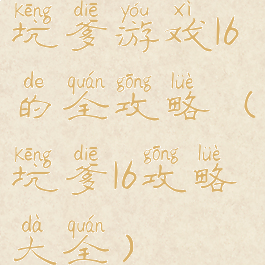 kēng diē yóu xì
坑爹游戏16
de quán gōng lüè
的全攻略（
kēng diē gōng lüè
坑爹16攻略
dà quán
大全）